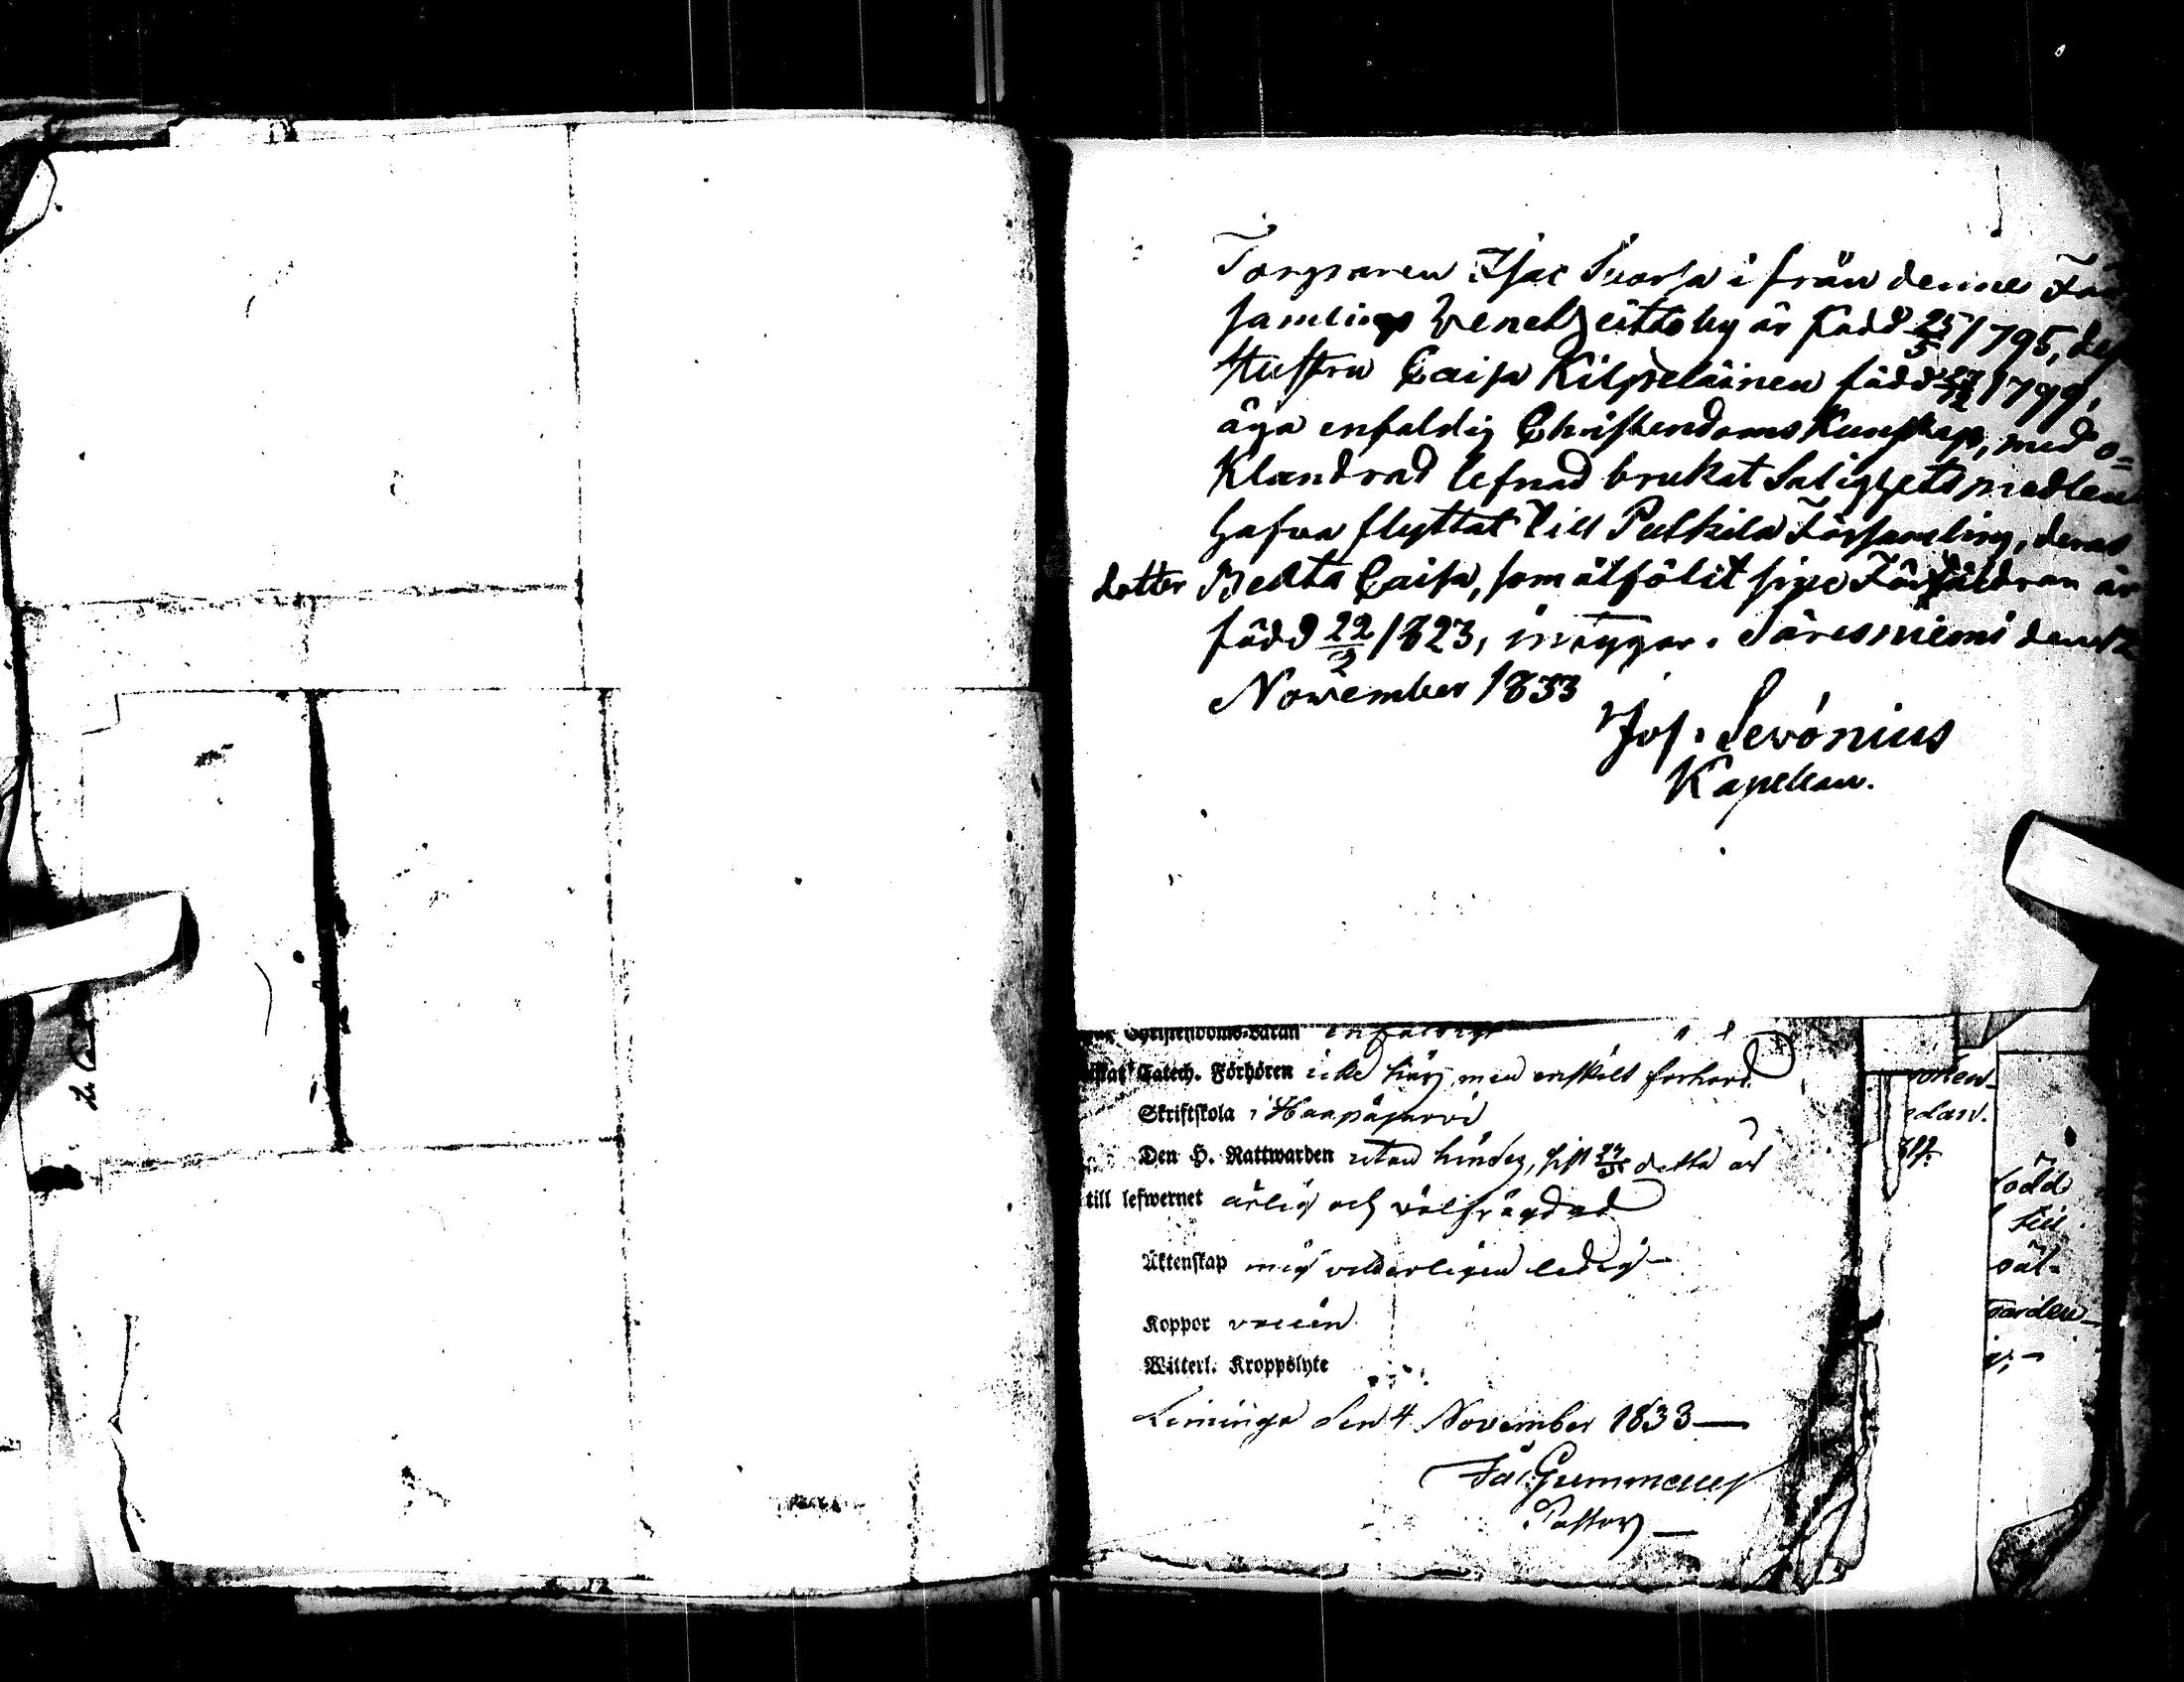 Torparen Isac Suorsa i från denne För
samlings Veneheittoby är född 25/5 1795, des
Hustru Caisa Kilpeläinen född 27/12 1799,
äga enfaldig Christendoms Kunskap, med o=
klandrad lefnad brukat Salighets medlen
hafva flyttat till Pulkila Församling, deras
dotter Beata Caisa, som åtfölit sine Föräldrar är
född 22/2 1823, intygar. Säresniemi den 12
November 1833
Jos. Sevónius
Kapellan.
Christendoms-Läran enfaldigt
Catech. Förhören icke här, men enskilt förhörd
Skriftskola i Haapajärvi
Den H. Nattwarden utan hinder, sist detta år
till lefwernet ärlig och välfrägdad
Äktenskap mig veterligen ledig
Koppor vaccin
Witterl. Kroppslyte
Limingo den 4 November 1833
Gummerus
Pastor
född
till